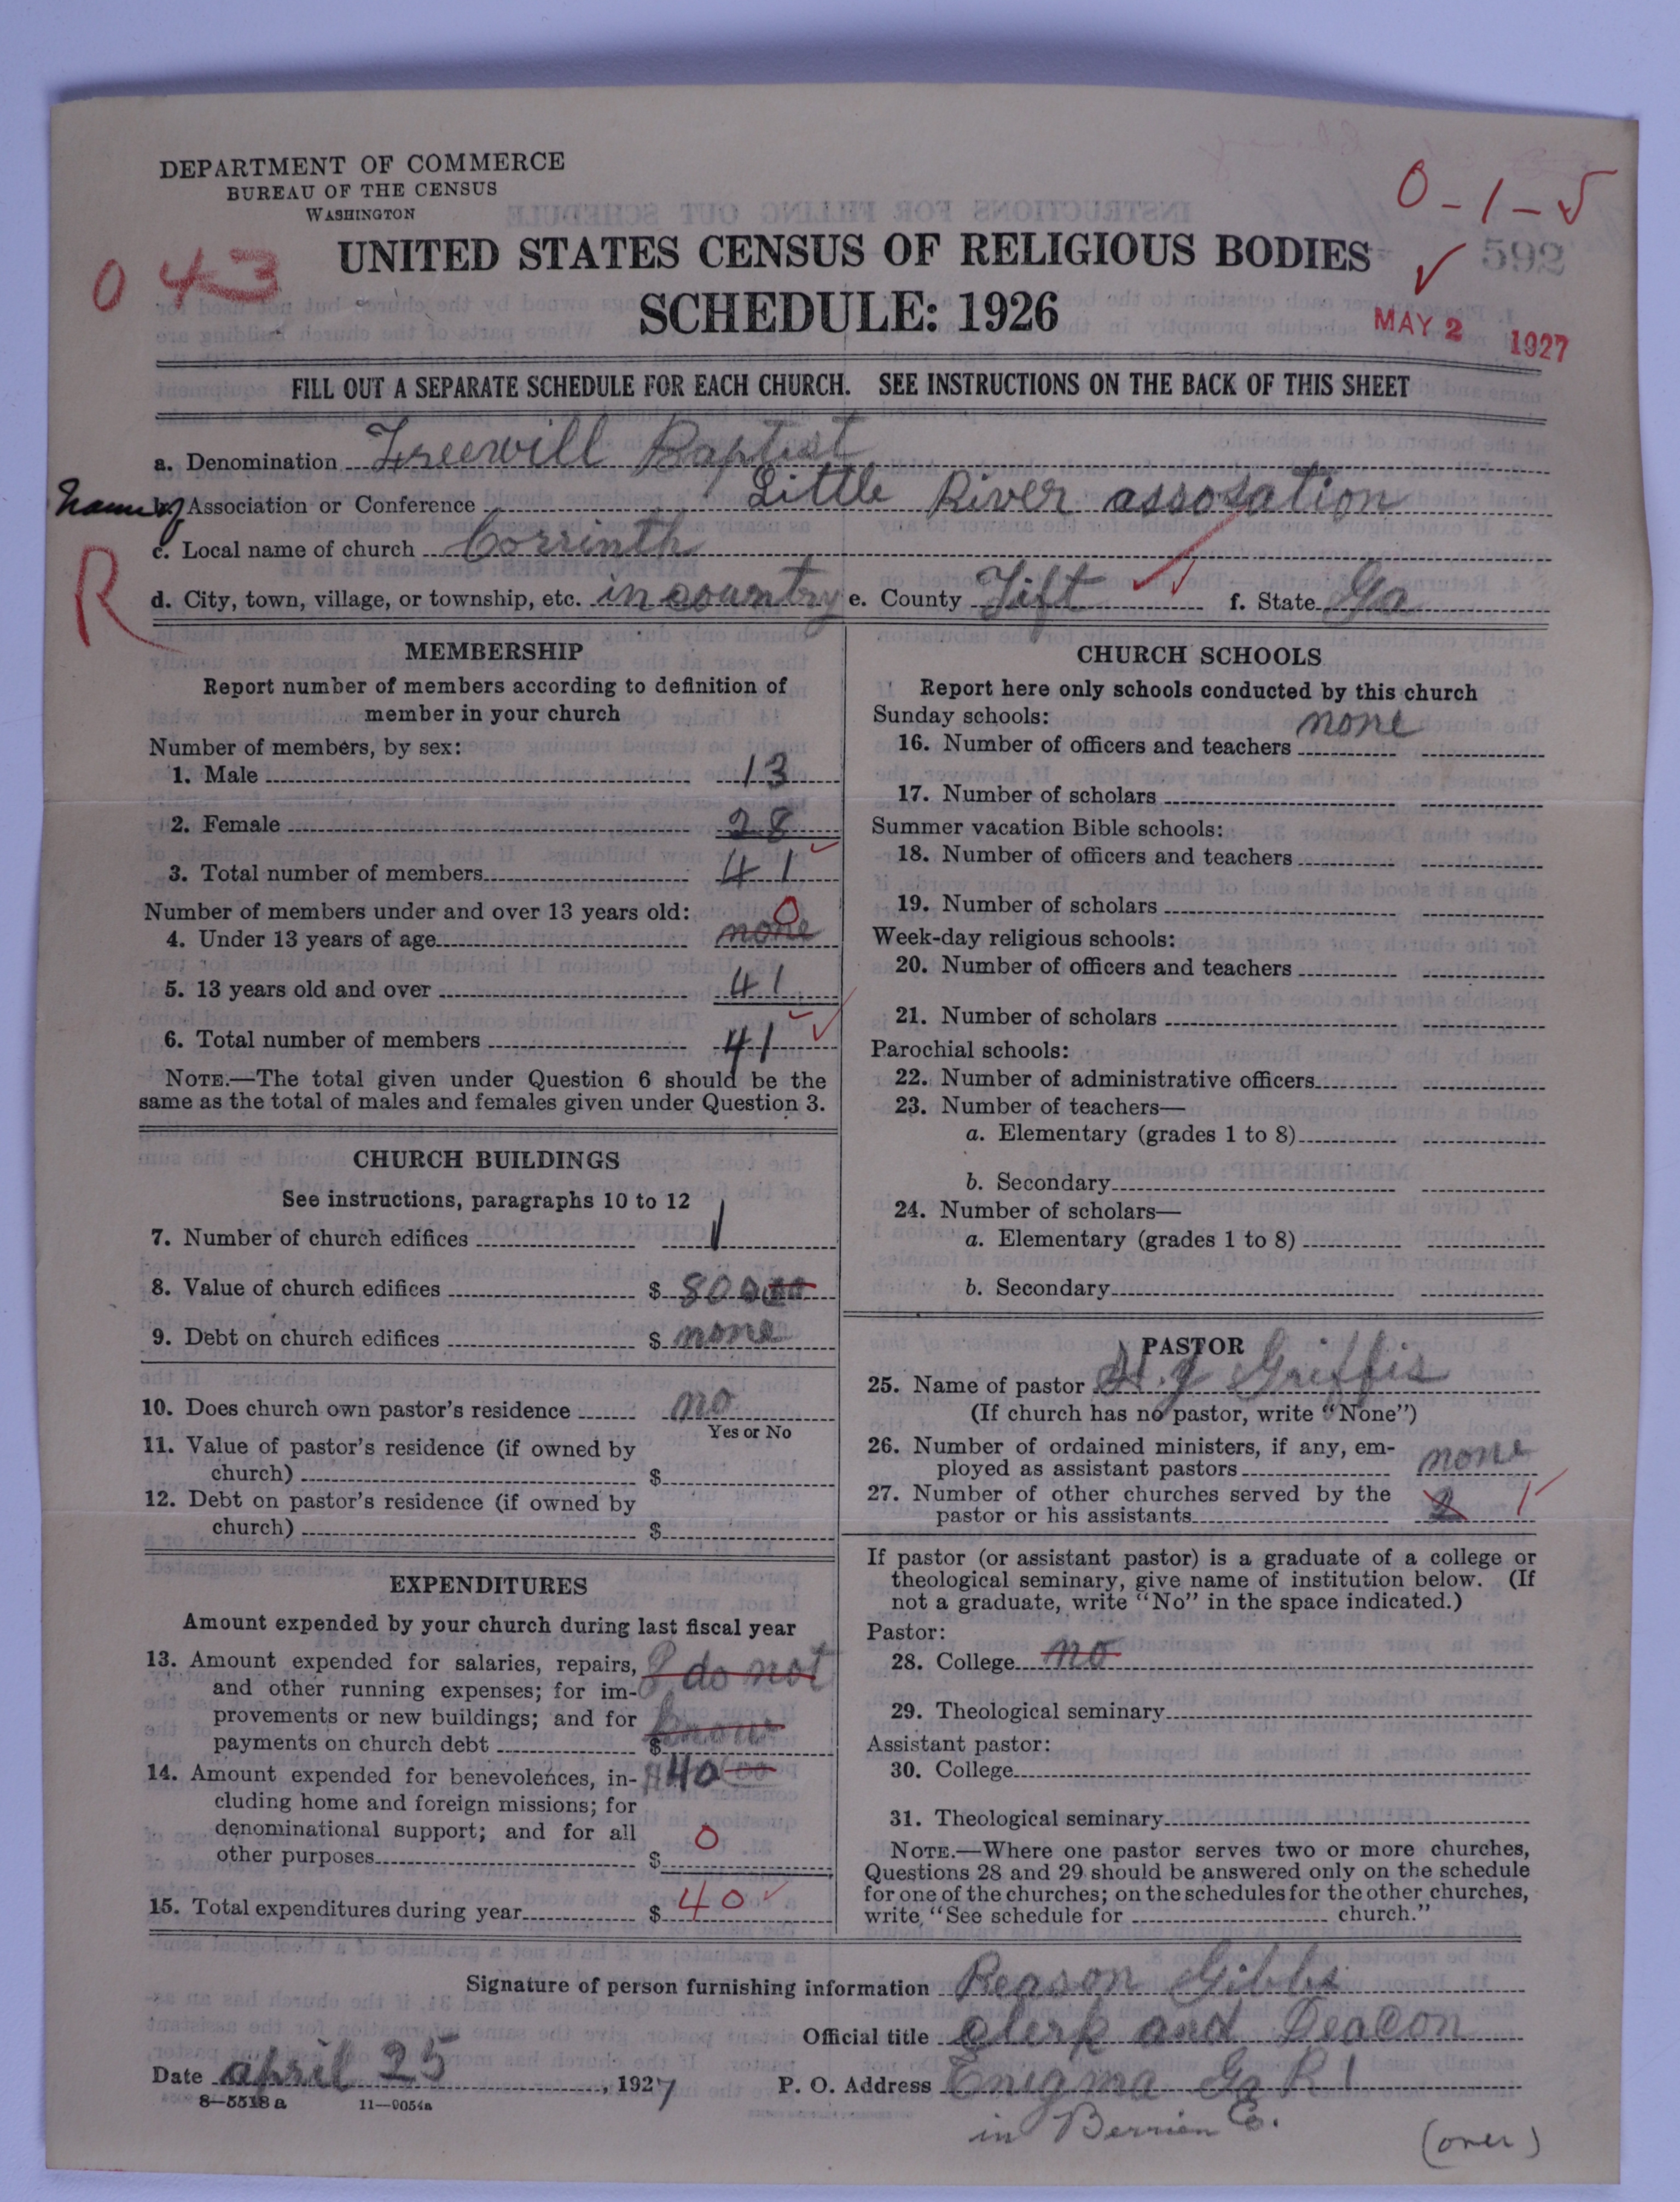 DEPARTMENT OF COMMERCE
BUREAU OF THE CENSUS
WASHINGTON
0-1-5
592
043
UNITED STATES CENSUS OF RELIGIOUS BODIES
SCHEDULE: 1926
MAY 2 1927
FILL OUT A SEPARATE SCHEDULE FOR EACH CHURCH. SEE INSTRUCTIONS ON THE BACK OF THIS SHEET
a. Denomination Freewill Baptist
Name of b. Association or Conference Little River assosation
R
c. Local name of church Corrinth
d. City, town, village, or township, etc. in country e. County Tift f. State Ga
MEMBERSHIP
Report number of members according to definition of
member in your church
Number of members, by sex:
1. Male 13
2. Female 28
3. Total number of members 41
Number of members under and over 13 years old: 0
4. Under 13 years of age none
5. 13 years old and over 41
6. Total number of members 41
NOTE.—The total given under Question 6 should be the
same as the total of males and females given under Question 3.
CHURCH BUILDINGS
See instructions, paragraphs 10 to 12
7. Number of church edifices 1
8. Value of church edifices $ 800 00
9. Debt on church edifices $ none
10. Does church own pastor's residence no
Yes or No
11. Value of pastor's residence (if owned by
church) $
12. Debt on pastor's residence (if owned by
church) $
EXPENDITURES
Amount expended by your church during last fiscal year
13. Amount expended for salaries, repairs, I do not
and other running expenses; for im-
provements or new buildings; and for know
payments on church debt $
14. Amount expended for benevolences, in- $40 00
cluding home and foreign missions; for
denominational support; and for all 0
other purposes $
15. Total expenditures during year $ 40
CHURCH SCHOOLS
Report here only schools conducted by this church
Sunday schools: none
16. Number of officers and teachers
17. Number of scholars
Summer vacation Bible schools:
18. Number of officers and teachers
19. Number of scholars
Week-day religious schools:
20. Number of officers and teachers
21. Number of scholars
Parochial schools:
22. Number of administrative officers
23. Number of teachers—
a. Elementary (grades 1 to 8)
b. Secondary
24. Number of scholars—
a. Elementary (grades 1 to 8)
b. Secondary
PASTOR
25. Name of pastor H. J Griffis
(If church has no pastor, write "None")
26. Number of ordained ministers, if any, em-
ployed as assistant pastors none
27. Number of other churches served by the
pastor or his assistants 2 1
If pastor (or assistant pastor) is a graduate of a college or
theological seminary, give name of institution below. (If
not a graduate, write "No" in the space indicated.)
Pastor:
28. College no
29. Theological seminary
Assistant pastor:
30. College
31. Theological seminary
NOTE.—Where one pastor serves two or more churches,
Questions 28 and 29 should be answered only on the schedule
for one of the churches; on the schedules for the other churches,
write, "See schedule for church."
Signature of person furnishing information Reason Gibbs
Official title Clerk and Deacon
Date april 25, 1927 P. O. Address Enigma Ga R 1
8-5518 a 11-9054a
in Berrien Co.
(over)